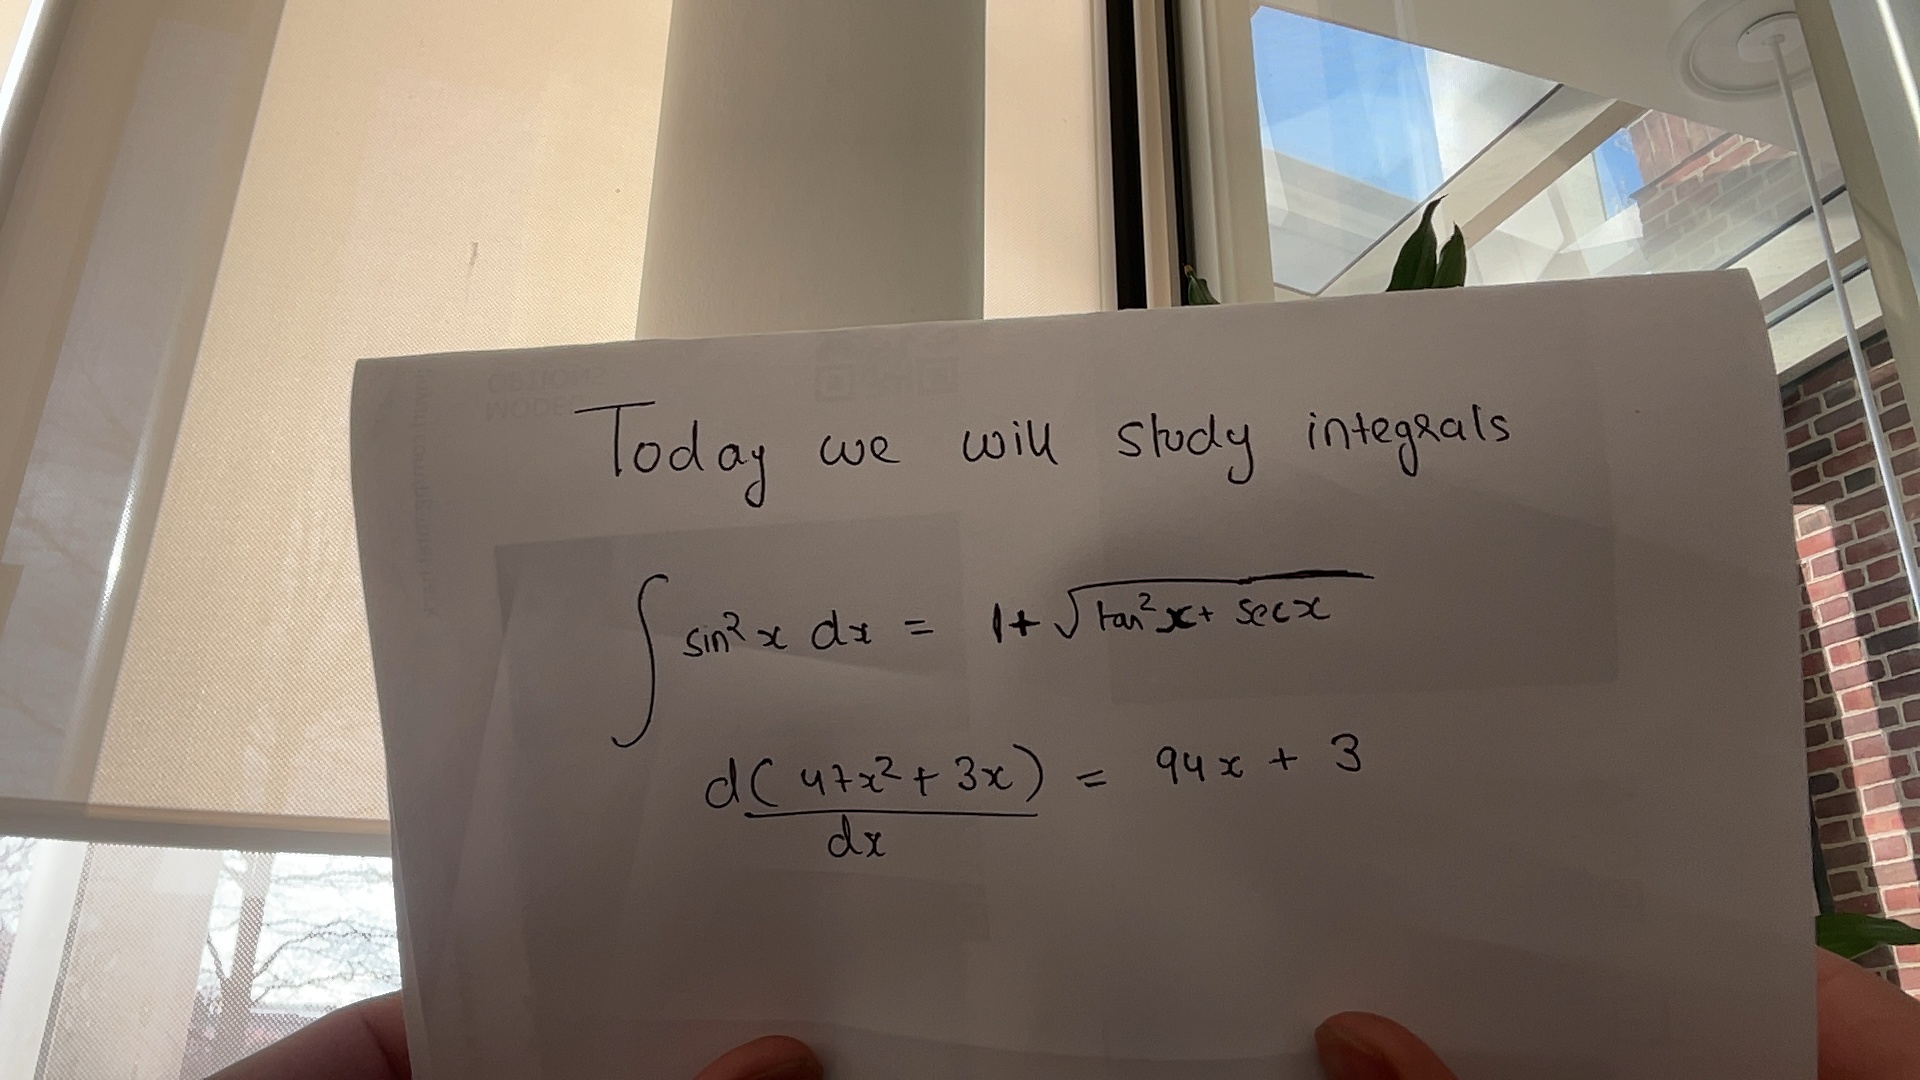 Today we will study integrals
∫ sin²x dx = 1+ √(tan²x + secx)
d(47x² + 3x) / dx = 94x + 3